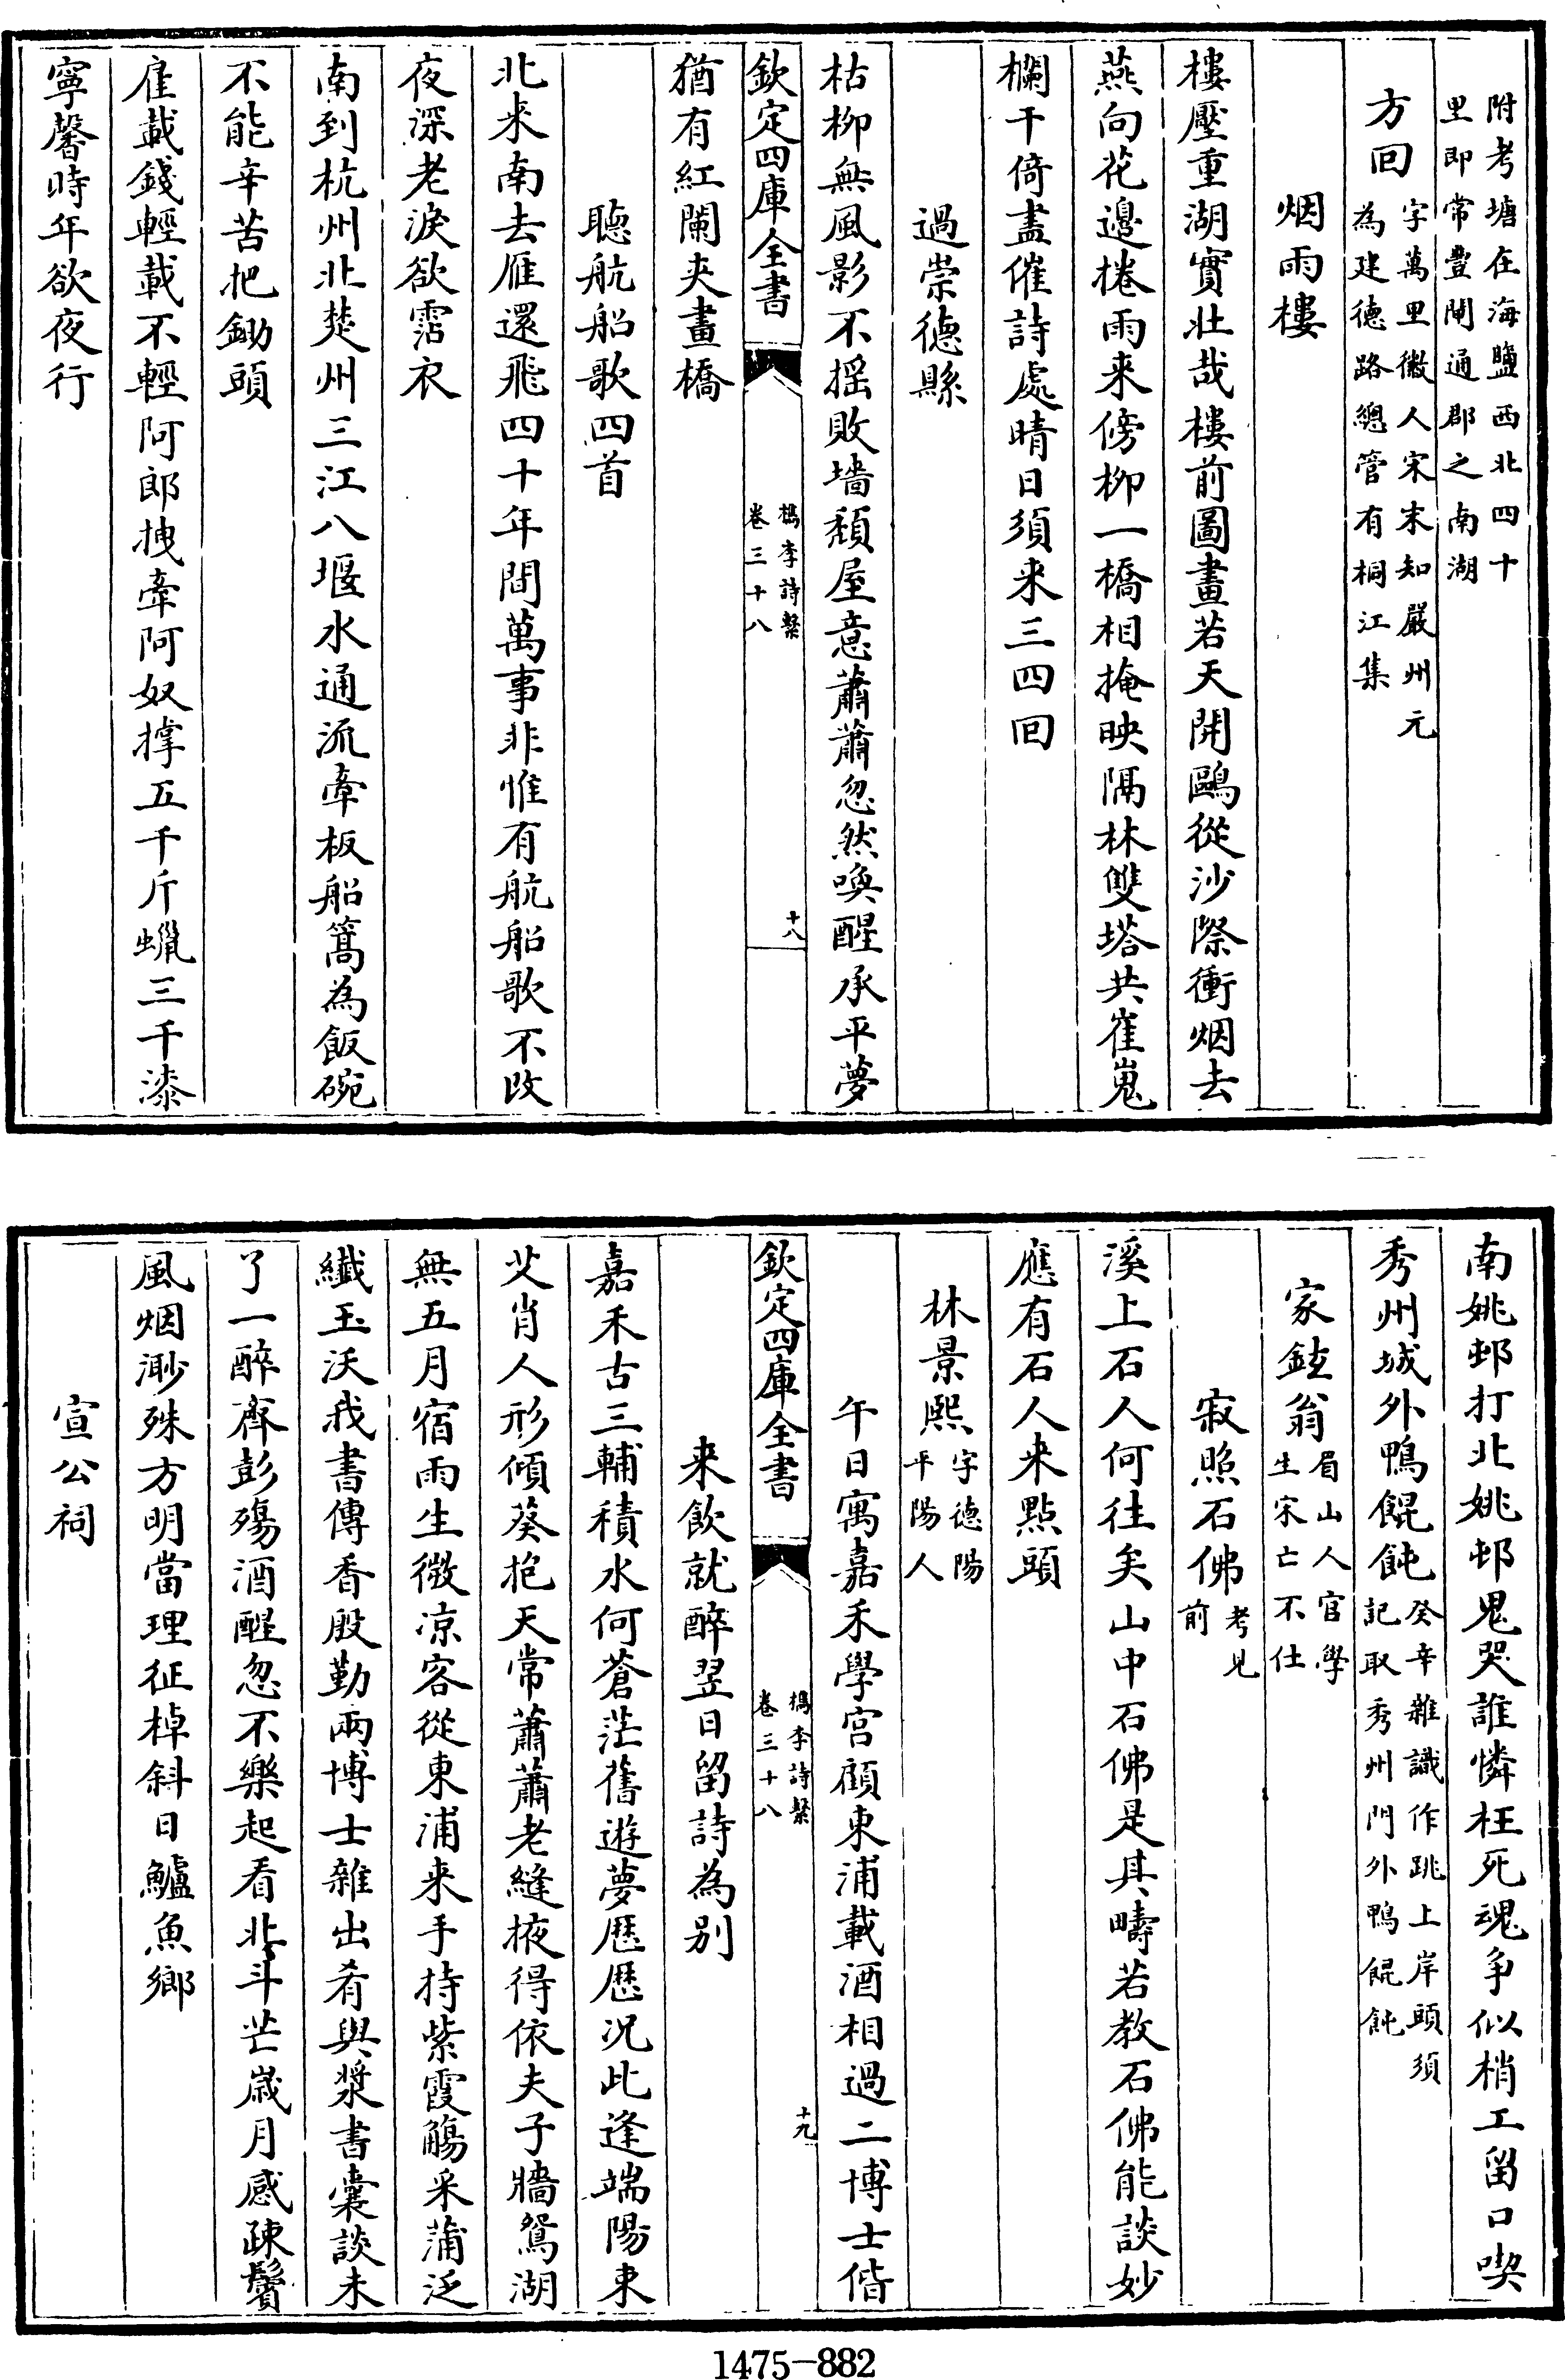 附考塘在海鹽西北四十
里即常豐閘通郡之南湖
方回字萬里徽人宋末知嚴州元
為建德路總管有桐江集
烟雨樓
樓壓重湖實壯哉樓前圖畫若天開鷗從沙際衝烟去
燕向花邊捲雨来傍柳一橋相掩映隔林雙塔共崔嵬
欄干倚盡催詩處晴日須来三四回
過崇德縣
枯柳無風影不揺敗墻頹屋意蕭蕭忽然喚醒承平夢
欽定四庫全書
檇李詩繫
卷三十八
十八
猶有紅闌夾畫橋
聽航船歌四首
北来南去雁還飛四十年間萬事非惟有航船歌不改
夜深老淚欲霑衣
南到杭州北楚州三江八堰水通流牽板船篙為飯碗
不能辛苦把鋤頭
雇載錢輕載不輕阿郎拽牽阿奴撑五千斤蠟三千漆
寧馨時年欲夜行
南姚邨打北姚邨鬼哭誰憐枉死魂争似梢工留口喫
秀州城外鴨餛飩癸辛雜識作跳上岸頭須
記取秀州門外鴨餛飩
家鉉翁眉山人官學
生宋亡不仕
寂照石佛考見
前
溪上石人何往矣山中石佛是其疇若教石佛能談妙
應有石人来點頭
林景熙字德陽
平陽人
午日寓嘉禾學宫顧東浦載酒相過二博士偕
欽定四庫全書
檇李詩繫
卷三十八
十九
来飲就醉翌日留詩為别
嘉禾古三輔積水何蒼茫舊遊夢歴歴况此逢端陽東
艾肖人形傾葵抱天常蕭蕭老縫掖得依夫子牆鴛湖
無五月宿雨生微凉客從東浦来手持紫霞觴采蒲泛
纖玉沃我書傳香殷勤兩博士雜出肴與漿書囊談未
了一醉齊彭殤酒醒忽不樂起看北斗芒歳月感疎鬢
風烟渺殊方明當理征棹斜日鱸魚鄉
宣公祠
1475-882